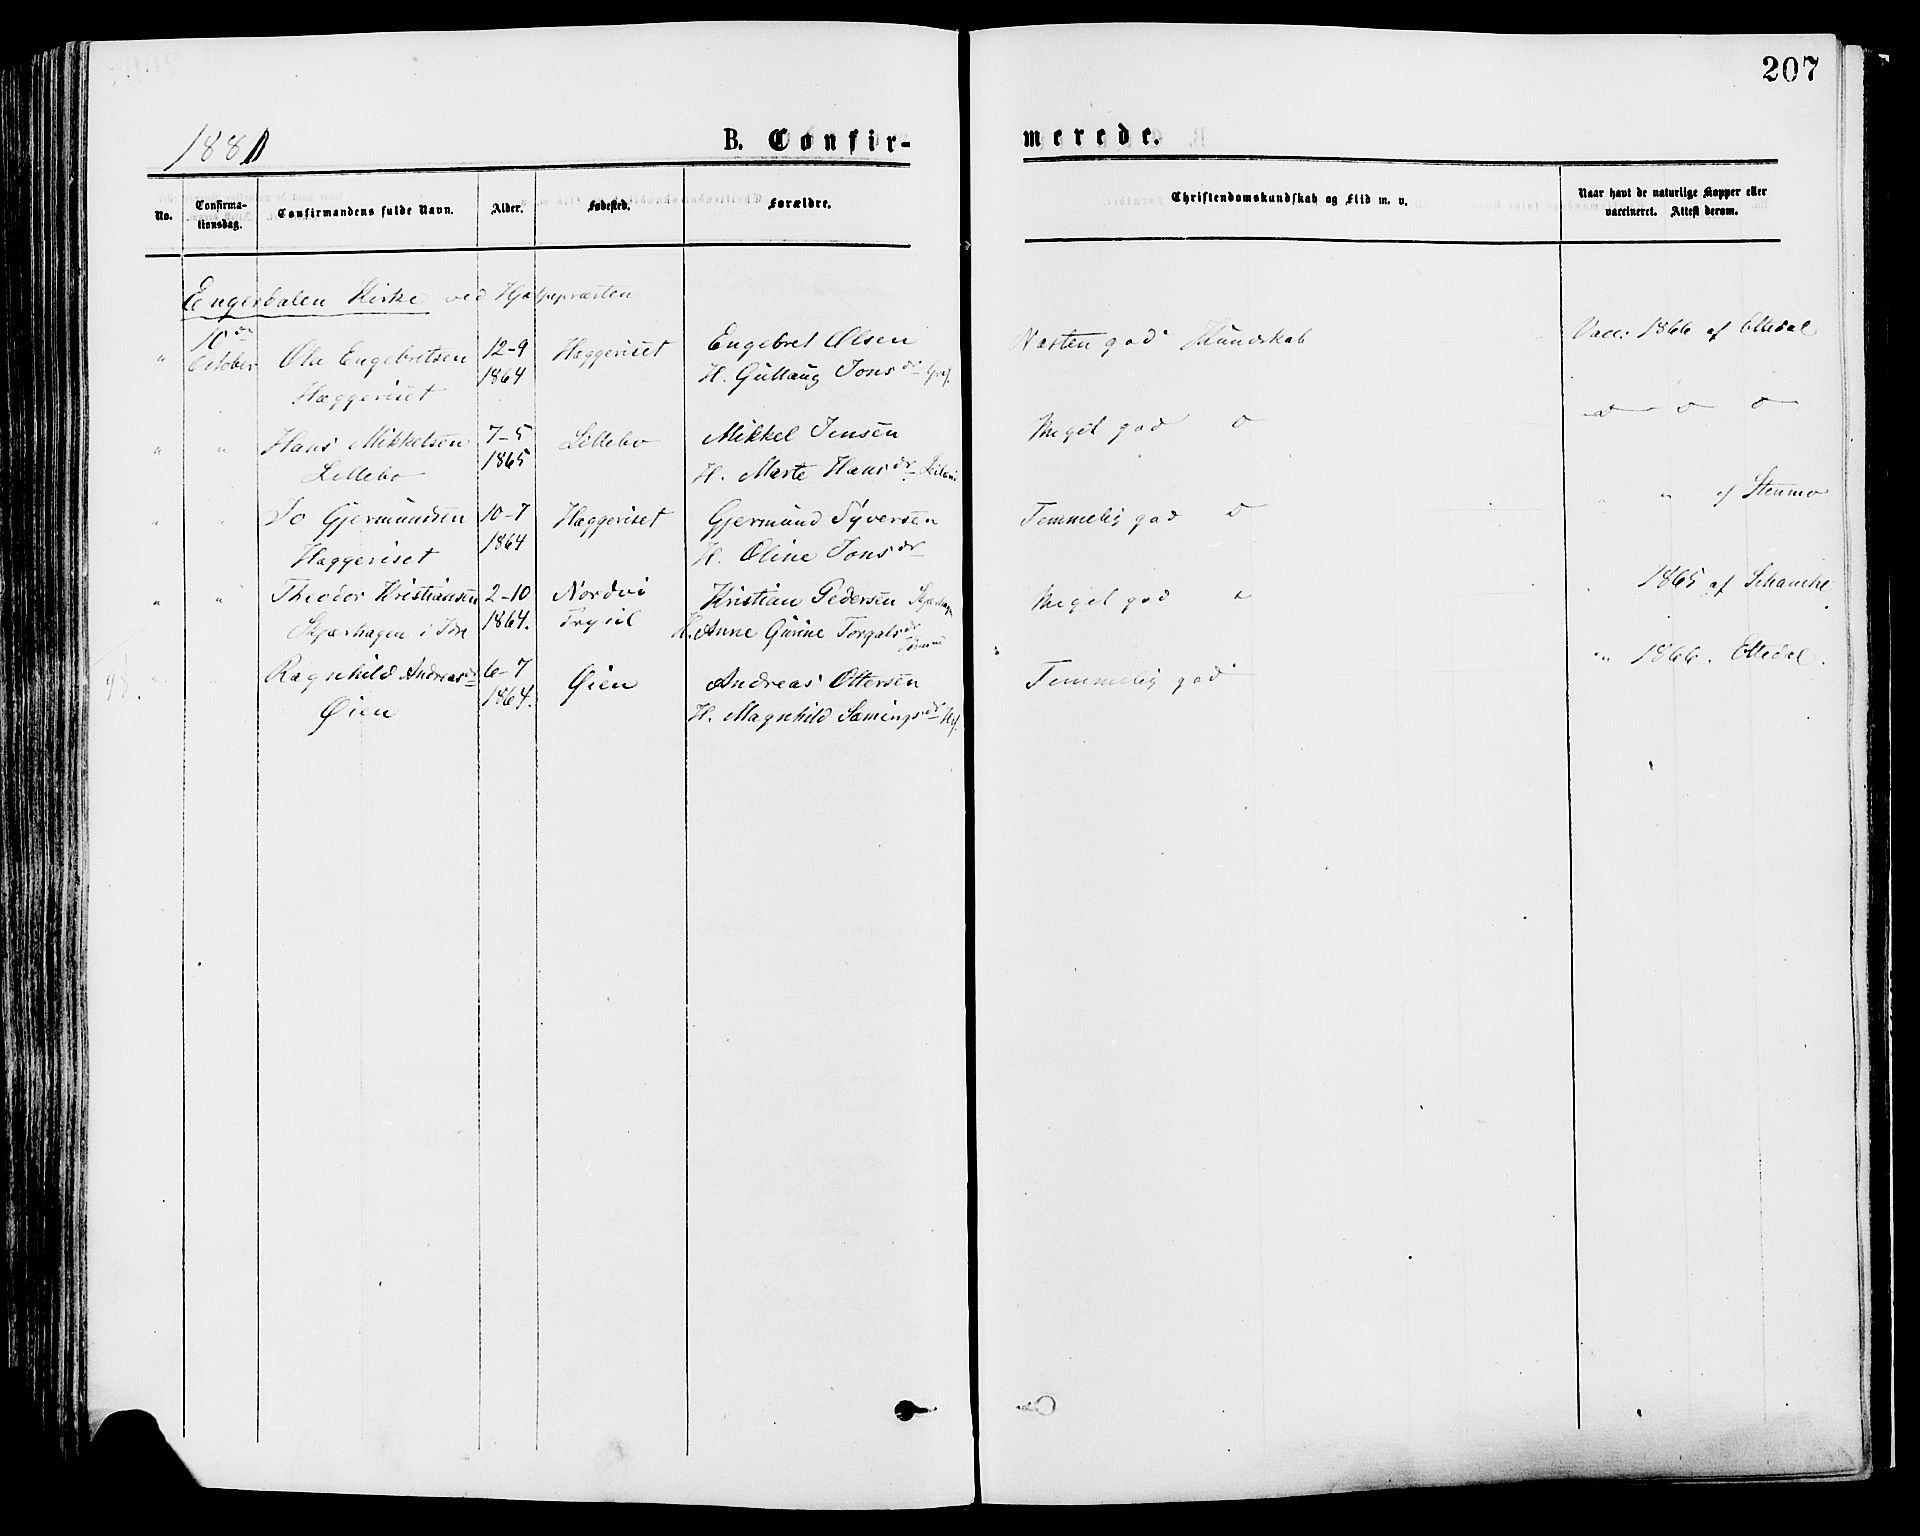 207
1880
B. Confir-
merede.
No.
Confirma-
tionsdag.
Confirmandens fulde Navn.
Alder.
Fødested.
Forældre.
Christendomskundskab og Flid m. v.
Naar havt de naturlige Kopper eller
vaccineret. Attest derom.
Engerdalen Kirke ved Hjelpepræsten
10de October Ole Engebretsen 12-9 Haggeriset Engebret Olsen Næsten god Kundskab Vacc. 1866 af Ottedal
Haggeriset 1864 H. Gullaug Jonsdr
" " Hans Mikkelsen 7-5 Lillebo Mikkel Jensen Meget god do do
Lillebo 1865 H. Marte Hansdr
" " Jo Gjermundsen 10-7 Haggeriset Gjermund Syversen Temmelig god do " " af Stenmo
Haggeriset 1864 H. Oline Jonsdr
" " Theodor Kristiansen 2-10 Nordvi Kristian Pedersen Meget god " " 1865 af Schanche
Skjærhagen i Idre 1864. Trysil H. Anne Gurine Torgalsdr
" " Ragnhild Andreasdr 6-7 Øien Andreas Ottersen Temmelig god " 1866. Ottedal.
Øien 1864. H. Magnhild Sämingsdr